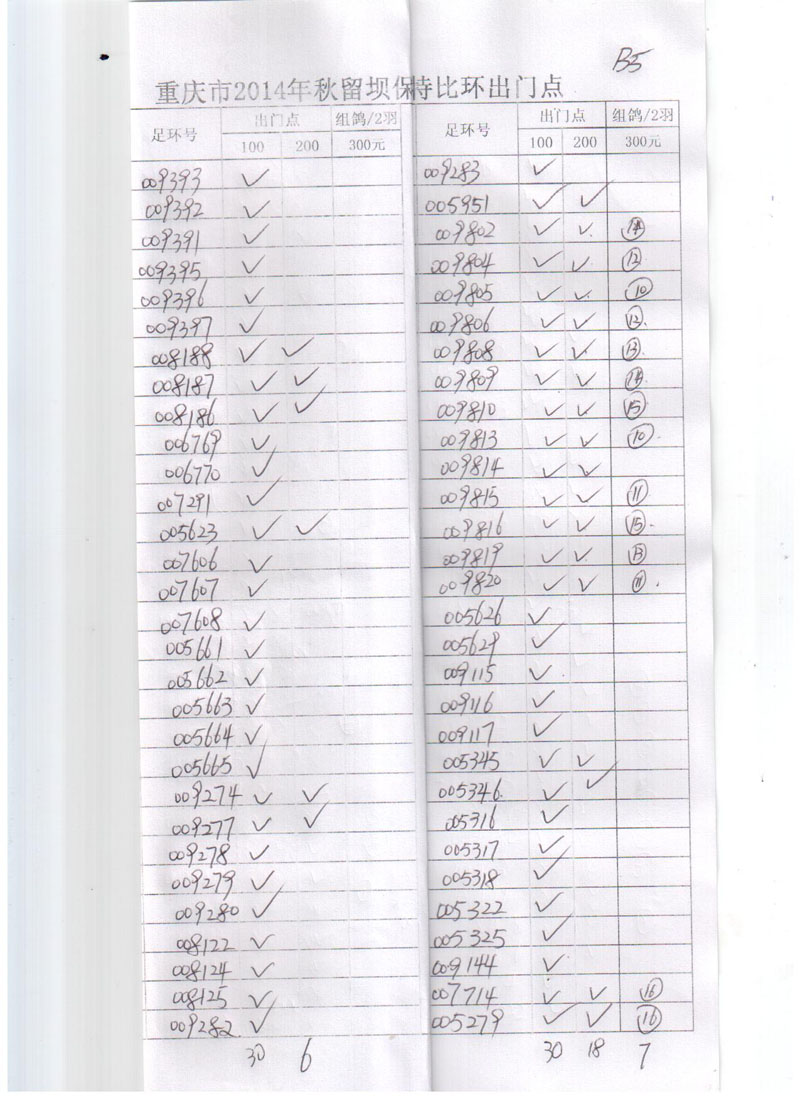 B5
重庆市2014年秋留坝保特比环出门点
足环号 出门点 组鸽/2羽 足环号 出门点 组鸽/2羽
100 200 300元 100 200 300元
009393 ✓ 009283 ✓
009392 ✓ 005951 ✓ ✓
009391 ✓ 009802 ✓ ✓ ⑭
009395 ✓ 009804 ✓ ✓ ⑫
009396 ✓ 009805 ✓ ✓ ⑩
009397 ✓ 009806 ✓ ✓ ⑫
008188 ✓ ✓ 009808 ✓ ✓ ⑬
008187 ✓ ✓ 009809 ✓ ✓ ⑭
008186 ✓ ✓ 009810 ✓ ✓ ⑮
006769 ✓ 009813 ✓ ✓ ⑩
006770 ✓ 009814 ✓ ✓
007291 ✓ 009815 ✓ ✓ ⑪
005623 ✓ ✓ 009816 ✓ ✓ ⑮
007606 ✓ 009819 ✓ ✓ ⑬
007607 ✓ 009820 ✓ ✓ ⑪
007608 ✓ 005626 ✓
005661 ✓ 005629 ✓
005662 ✓ 009115 ✓
005663 ✓ 009116 ✓
005664 ✓ 009117 ✓
005665 ✓ 005345 ✓ ✓
009274 ✓ ✓ 005346 ✓ ✓
009277 ✓ ✓ 005316 ✓
009278 ✓ 005317 ✓
009279 ✓ 005318 ✓
009280 ✓ 005322 ✓
008122 ✓ 005325 ✓
008124 ✓ 009144 ✓
008125 ✓ 007714 ✓ ✓ ⑯
009282 ✓ 005279 ✓ ✓ ⑯
30 6 30 18 7